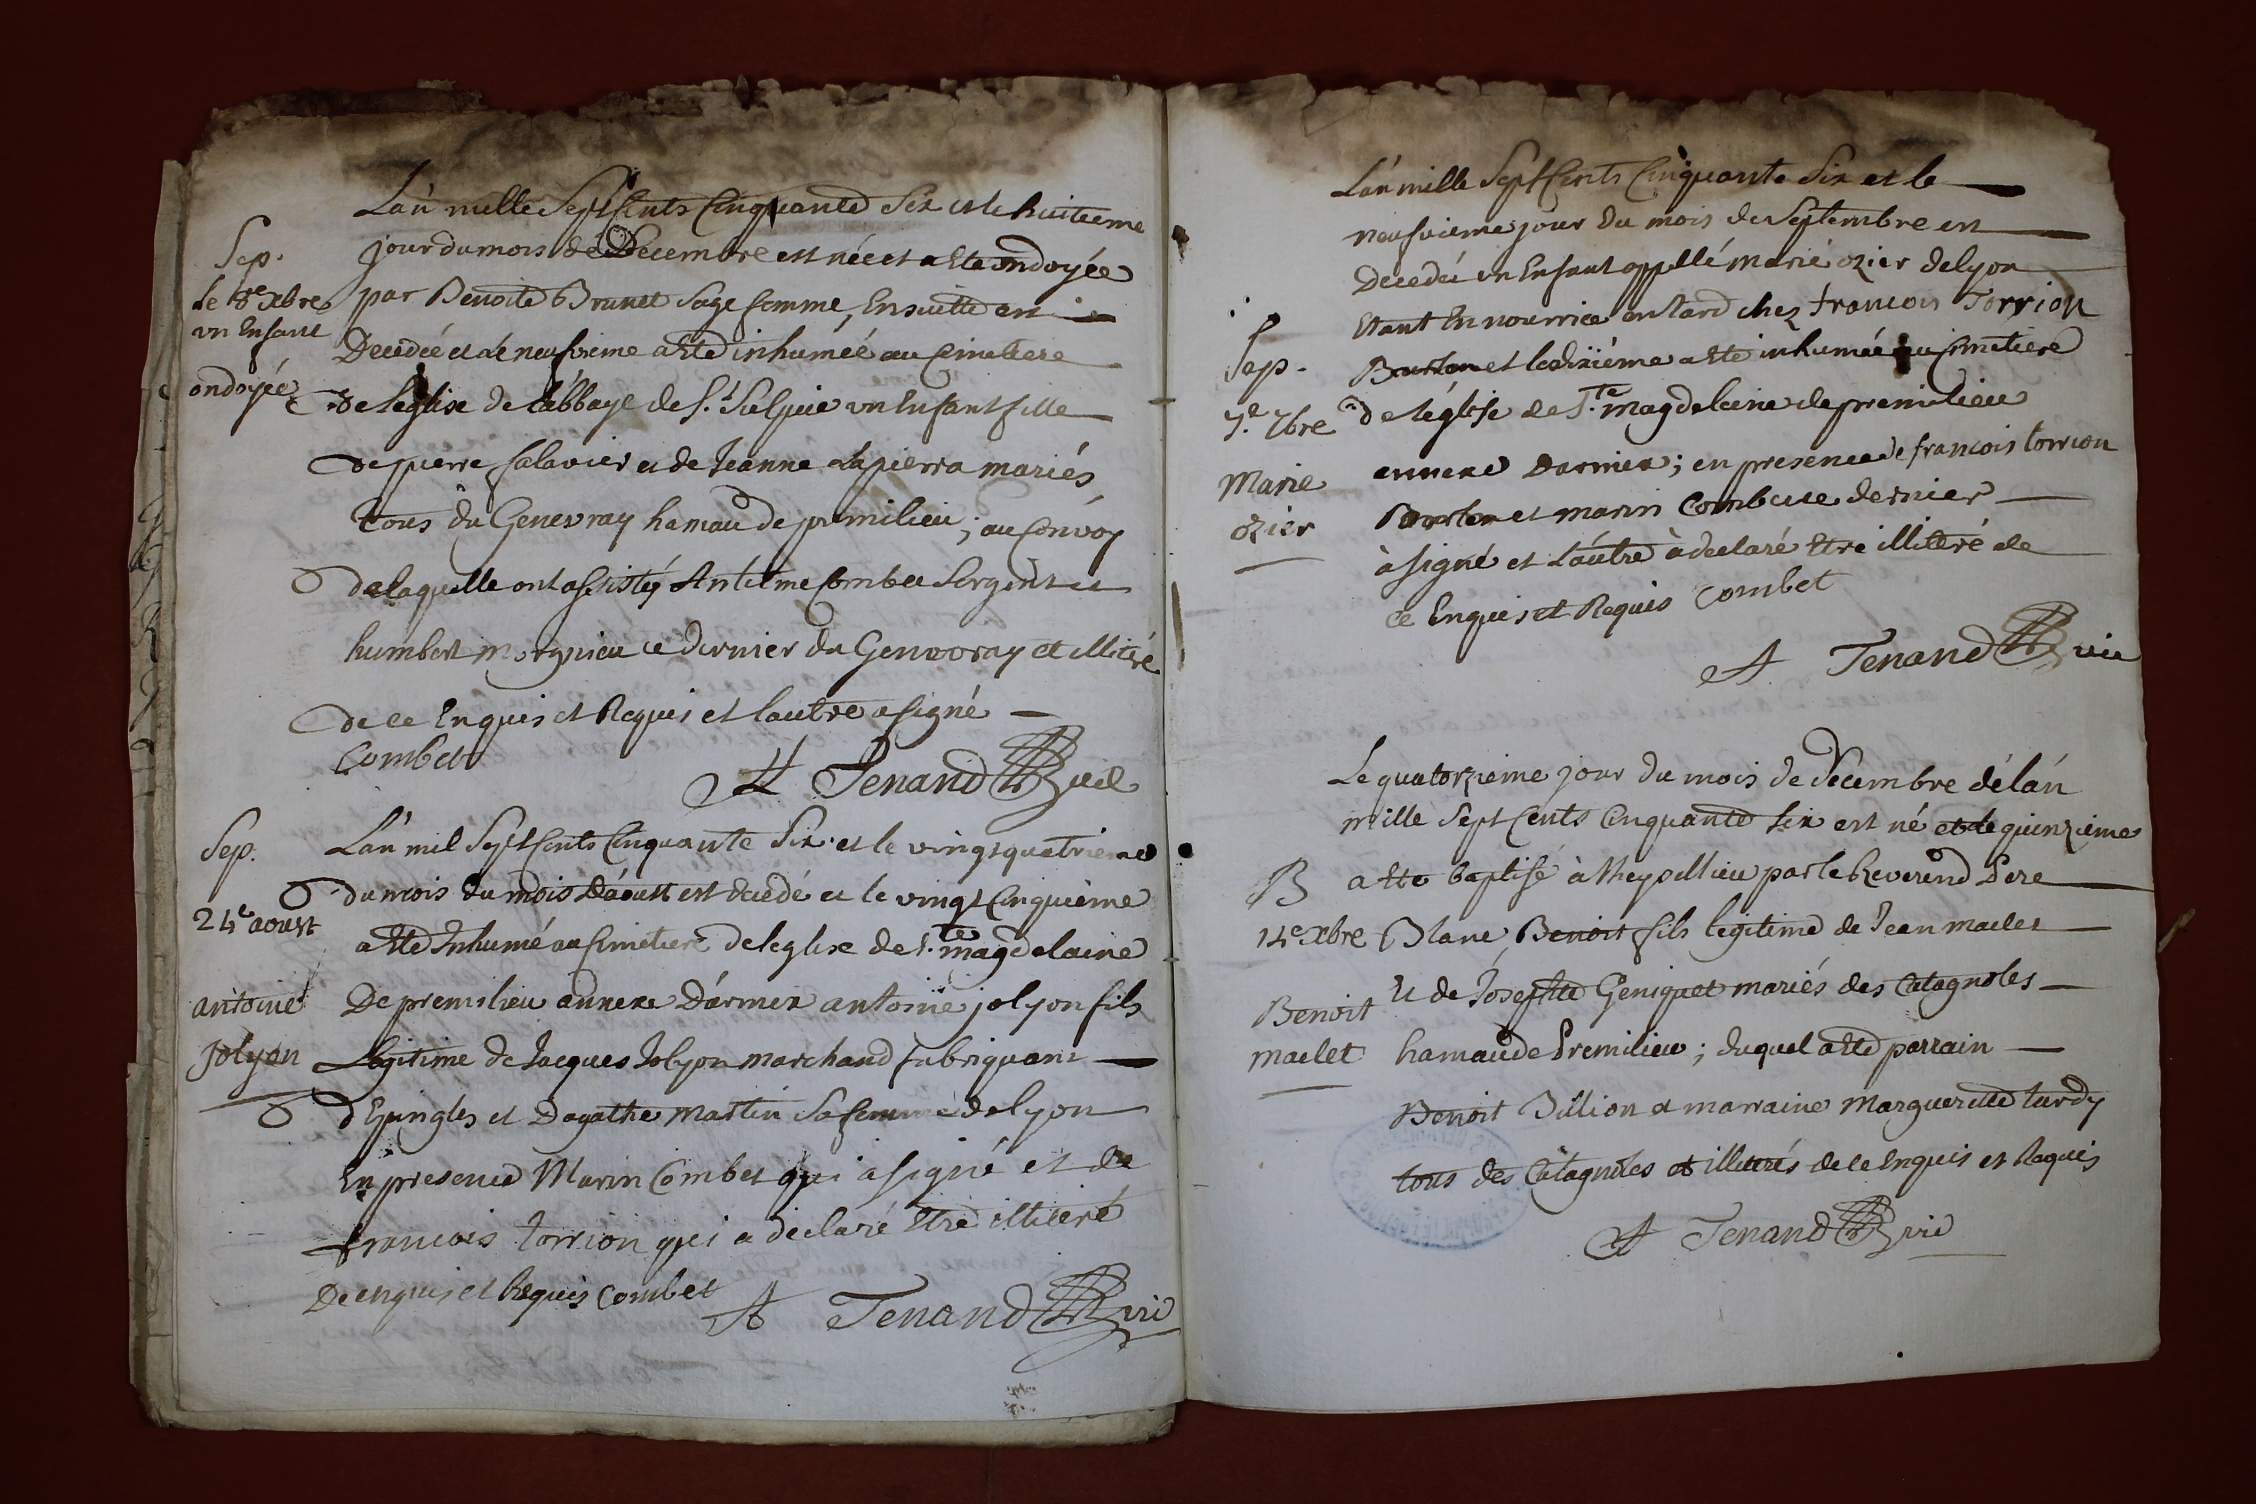 L'an mille Sept Cents Cinquante Six et le huitieme
Sep.
jour du mois de Decembre est née et a eté ondoyée
le 8e Xbre
par Benoite Brunet Sage femme, Ensuitte est
un Enfant
Decedée et le neufvieme a eté inhumée au Cimetiere
ondoyée
de l'église de l'abbaye de St. Sulpice un Enfant fille
de pierre salavier et de Jeanne Lapierra mariés
tous du Genevray hamau de premilieu; au Convoy
de laquelle ont assistéz Antelme Combet Sergent et
humbert morgnieu ce dernier du Genevray et illiteré
de ce Enquis et Requis et l'autre a signé
Combet
A Tenand vic
Sep.
L'an mil Sept Cents Cinquante Six et le vingt quatrieme
24e aoust
du mois du mois d'áoust est decedé et le vingt Cinquieme
a eté Inhumé au Cimetiere de leglise de Ste. magdelaine
antoine
De premilieu annexe D'armix antoine jolyon fils
Jolyon
Legitime de Jacques Jolyon marchand fabriquant
d'Epingles et Dagathe Martin Sa femme de lyon
En presence Marin Combet qui a signé et de
francois torrion qui a declaré Etre illiteré
De enquis et Requis Combet
A Tenand vic
L'an mille Sept Cents Cinquante Six et le
neufvieme jour du mois de Septembre est
Decedée un Enfant appellé marie ozier de lyon
Etant En nourrice en lard chez francois Torrion
Sep.
Burlen et le dixième a eté inhumée au Cimetiere
7bre
de l'église de Ste. magdeleine de premilieu
Marie
annexe Darmix; en presence de francois torrion
ozier
Burlen et marin Combet ce dernier
à signé et l'autre à declaré Etre illiteré de
ce Enquis et Requis Combet
A Tenand vic
Le quatorzieme jour du mois de decembre de l'an
mille Sept Cents Cinquante Six est né et le quinzieme
B
a eté baptisé à theysillieu par le Reverend Pere
14e Xbre
Blanc Benoit fils legitime de Jean maclet
Benoit
et de Josephte Geniquet mariés des Catagnoles
maclet
hamau de Premilieu; duquel a eté parrain
Benoit Billion et marraine Marguerette tardy
tous des Catagnoles et illiterés de ce Enquis et Requis
A Tenand vic